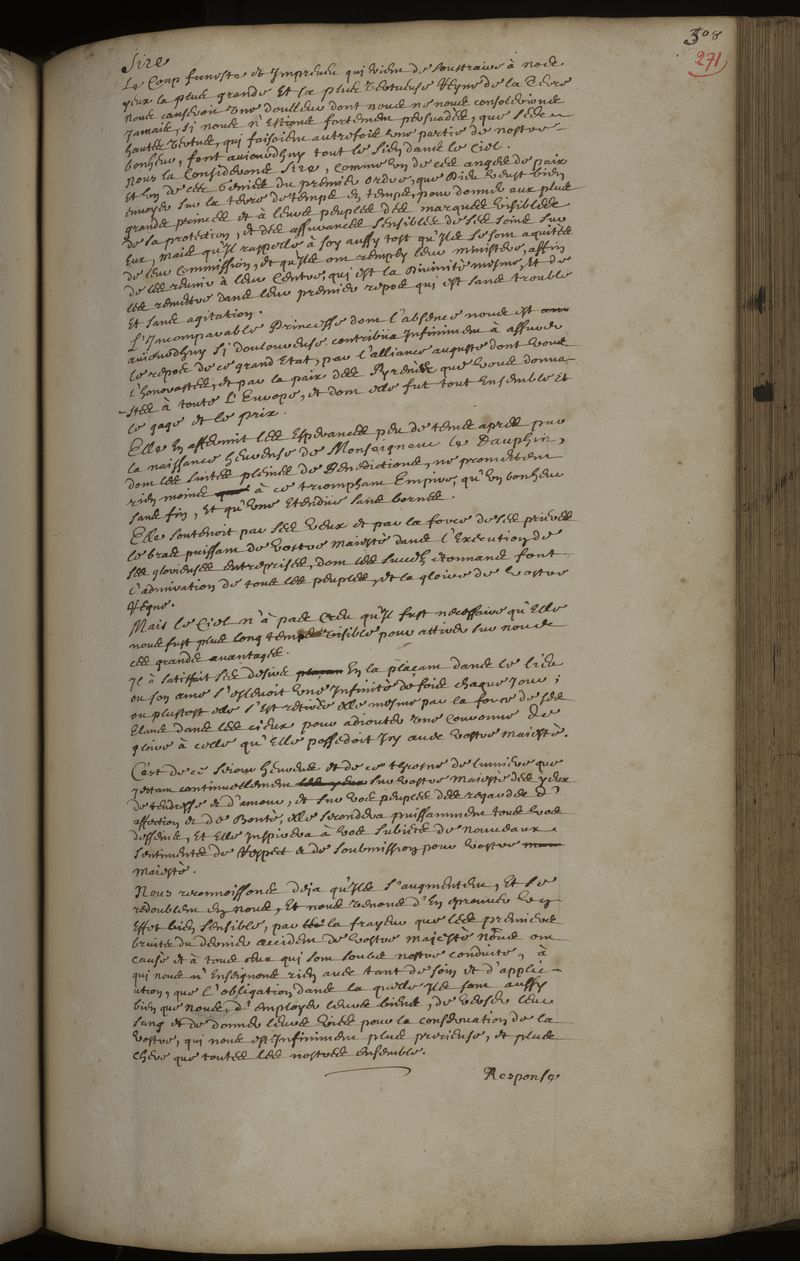 308
271
Sire
Le Coup funeste et Impreveu qui vient de soustraire à nos
yeux la plus grande Et la plus Vertueuse Reyne de la Terre
nous causeroit Une douleur dont nous ne nous consolerions
Jamais, si nous n'Estions fortement persuadés, que ses
hautes Vertus, qui faisoient autrefois une partie de nostre
bonheur, font aujourdhuy tout le sien dans le Ciel.
Nous la Considerons Sire, comme Un de ces anges de paix
Et Un de ces Genies du premier ordre, que Dieu Veust bien
envoyer sur la terre de temps en temps, pour donner aux plus
grands princes et à leurs peuples des marques visibles
de sa protection, et des assurances sensibles de ses soins sur
Eux, mais qu'il rappelle à soy aussy tost qu'ils se sont aquités
de leur Commission, et qu'ils ont remply leur ministere, affin
de les reunir à leur Centre, qui est la Divinité mesme, Et de
les remettre dans leur premier repos qui est sans trouble
Et sans agitation.
L'Incomparable Princesse dont l'absence nous est
aujourdhuy si douloureuse, contribua Infiniment à assurer
le repos de ce grand Etat, par l'alliance auguste dont Vous
l'honorastes, et par la paix des Pyrenées que Vous donna-
stes à toute L'Europe, et dont elle fut tout Ensemble Et
le gage et le prix.
Elle En affermit les Esperances peu de temps apres par
la naissance heureuse de Monseigneur le Dauphin,
dont les suites pleines de Benedictions, ne promettent
rien moins à ce triomphant Empire, qu'Un bonheur
sans fin, Et qu'Une Etendüe sans bornes.
Elle soutenoit par ses Vœux et par la force de ses prieres
le bras puissant de Vostre Majesté dans l'Execution de
ses glorieuses entreprises, dont les succez etonnans font
l'admiration de tous les peuples, et la gloire de Vostre
Regne.
Mais le Ciel n'à pas Creu qu'il fust necessaire qu'Elle
nous fust plus long temps Visible pour attirer sur nous
ces grands avantages.
Il à satisfait ses desirs En la plaçant dans le lieu
ou son ame s'eslevoit Une Infinité de fois chaque Jour;
ou plustost elle s'est retirée elle mesme par la force de ses
Elans dans les cieux pour adiouter Une Couronne de
gloire à celle qu'Elle possedoit Icy avec Vostre Majesté.
C'est de ce sejour heureux et de ce throsne de lumiere que
jettant continuellement sur Vostre Majesté des yeux
de tendresse et d'amour, et sur Vos peuples des regards d'
affection et de Bonté, elle secondera puissamment tous Vos
desseins, Et Elle Inspirera à Vos Subiets de Nouveaux
sentiments de Respect et de Soubmission pour Vostre
Majesté.
Nous reconnoissons deja qu'ils s'augmentent, Et se
redoublent en nous, Et nous Venons d'En eprouver Un
Effet bien sensible, par la frayeur que les premiers
bruits du dernier accident de Vostre Majesté Nous ont
causé et à tous ceux qui sont soubs nostre conduite, à
qui nous n'Enseignons rien avec tant de soin et d'applic-
ation, que l'obligation dans la quelle ils sont aussy
bien que Nous, d'employer leurs biens, de verser leur
sang et de donner leurs Vies pour la conservation de la
Vostre, qui nous est Infiniment plus precieuse, et plus
chere que toutes les nostres ensemble.
Response